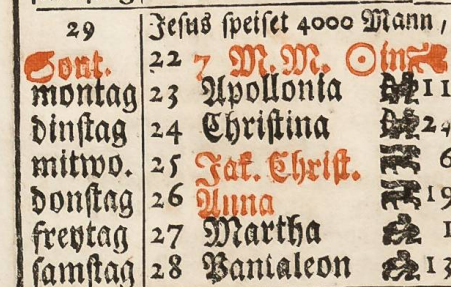 29 Jesus speiset 4000 Mann,
Sont. 22 7 M.M. ☉ in
montag 23 Apollonia 11
dinstag 24 Christina 24
mitwo. 25 Jak. Christ. 6
donstag 26 Anna 19
freytag 27 Martha 1
samstag 28 Pantaleon 13